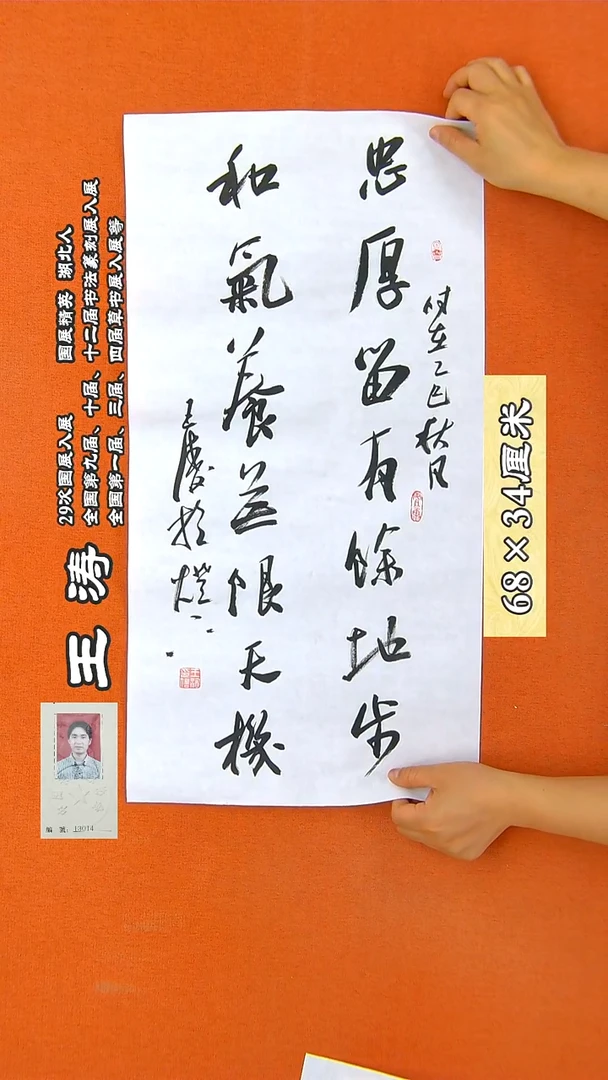 忠厚留有餘地步
時在乙巳秋月
和氣養無限天機
王濤於燈下
68×34厘米
王涛
29次国展入展 国展精英 湖北人
全国第九届、十届、十二届书法篆刻展入展
全国第一届、三届、四届草书展入展等
编号：